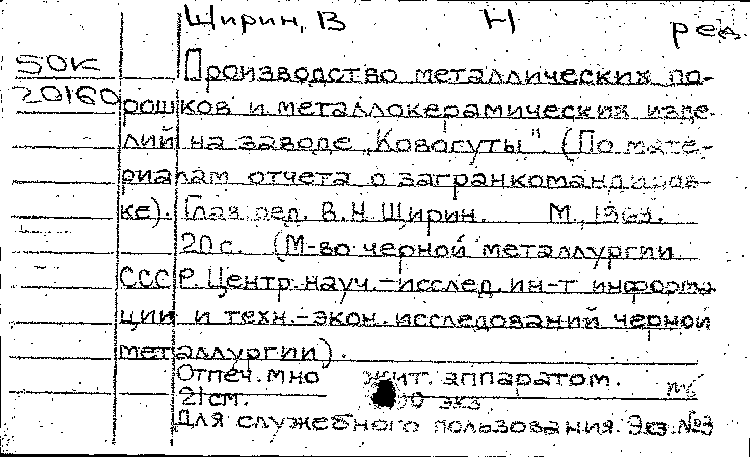 Щирин, В Н ред
50К Производство металлических по-
20160 рошков и металлокерамических изде-
лий на заводе „Ковогуты" (По мате-
риалам отчета о загранкомандиров-
ке). Глав. ред. В.Н. Щирин. М., 1963.
20 с. (М-во черной металлургии
СССР. Центр. науч.-исслед. ин-т информа
ции и техн.-экон. исследований черной
металлургии).
Отпеч. мно жит. аппаратом.
21 см. 00 экз.
Для служебного пользования. Экз. №3